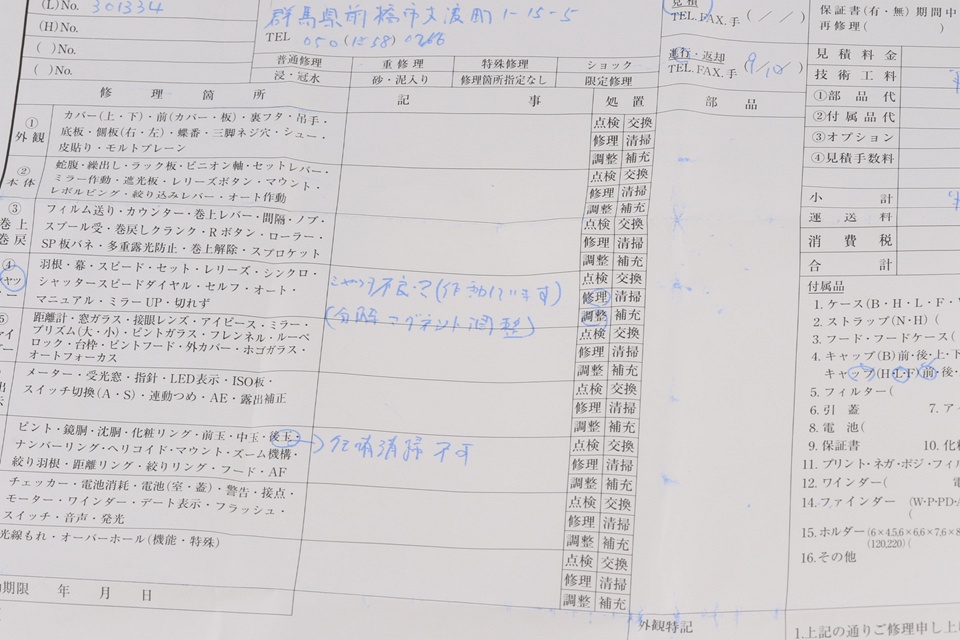 (L)No. 301334
(H)No.
( )No.
( )No.
群馬県前橋市文渡町1-15-5
TEL 050(1558)0266
普通修理 重修理 特殊修理 ショック
浸・冠水 砂・泥入り 修理箇所指定なし 限定修理
見積
TEL.FAX.手( / / )
進行・返却
TEL.FAX.手(9/10)
保証書(有・無)期間中
再修理(
見積料金
技術工料
①部品代
②付属品代
③オプション
④見積手数料
小計
運送料
消費税
合計
修理箇所 記事 処置 部品
①外観
カバー(上・下)・前(カバー・板)・裏フタ・吊手・
底板・側板(右・左)・蝶番・三脚ネジ穴・シュー・
皮貼り・モルトプレーン
点検 交換
修理 清掃
調整 補充
②本体
蛇腹・繰出し・ラック板・ピニオン軸・セットレバー・
ミラー作動・遮光板・レリーズボタン・マウント・
レボルビング・絞り込みレバー・オート作動
点検 交換
修理 清掃
調整 補充
③巻上巻戻
フィルム送り・カウンター・巻上レバー・間隔・ノブ・
スプール受・巻戻しクランク・Rボタン・ローラー・
SP板バネ・多重露光防止・巻上解除・スプロケット
点検 交換
修理 清掃
調整 補充
④
羽根・幕・スピード・セット・レリーズ・シンクロ・
シャッタースピードダイヤル・セルフ・オート・
マニュアル・ミラーUP・切れず
シャッター不良・?(作動しています)
(分解マグネット調整)
点検 交換
修理 清掃
調整 補充
距離計・窓ガラス・接眼レンズ・アイピース・ミラー・
プリズム(大・小)・ピントガラス・フレンネル・ルーペ
ロック・台枠・ピントフード・外カバー・ホゴガラス・
オートフォーカス
点検 交換
修理 清掃
調整 補充
メーター・受光窓・指針・LED表示・ISO板・
スイッチ切換(A・S)・連動つめ・AE・露出補正
点検 交換
修理 清掃
調整 補充
ピント・鏡胴・沈胴・化粧リング・前玉・中玉・後玉・
ナンバーリング・ヘリコイド・マウント・ズーム機構・
絞り羽根・距離リング・絞りリング・フード・AF
清掃不可
点検 交換
修理 清掃
調整 補充
チェッカー・電池消耗・電池(室・蓋)・警告・接点・
モーター・ワインダー・デート表示・フラッシュ・
スイッチ・音声・発光
点検 交換
修理 清掃
調整 補充
光線もれ・オーバーホール(機能・特殊)
点検 交換
修理 清掃
調整 補充
期限 年 月 日
付属品
1.ケース(B・H・L・F・
2.ストラップ(N・H)(
3.フード・フードケース(
4.キャップ(B)前・後・上・下
キャップ(H・L・F)前・後・
5.フィルター(
6.引蓋 7.ア
8.電池(
9.保証書 10.化
11.プリント・ネガ・ポジ・フィル
12.ワインダー( 電
14.ファインダー(W・P・PD・A
(
15.ホルダー(6×4.5,6×6,6×7,6×8
(120,220)(
16.その他
外観特記
1.上記の通りご修理申し上